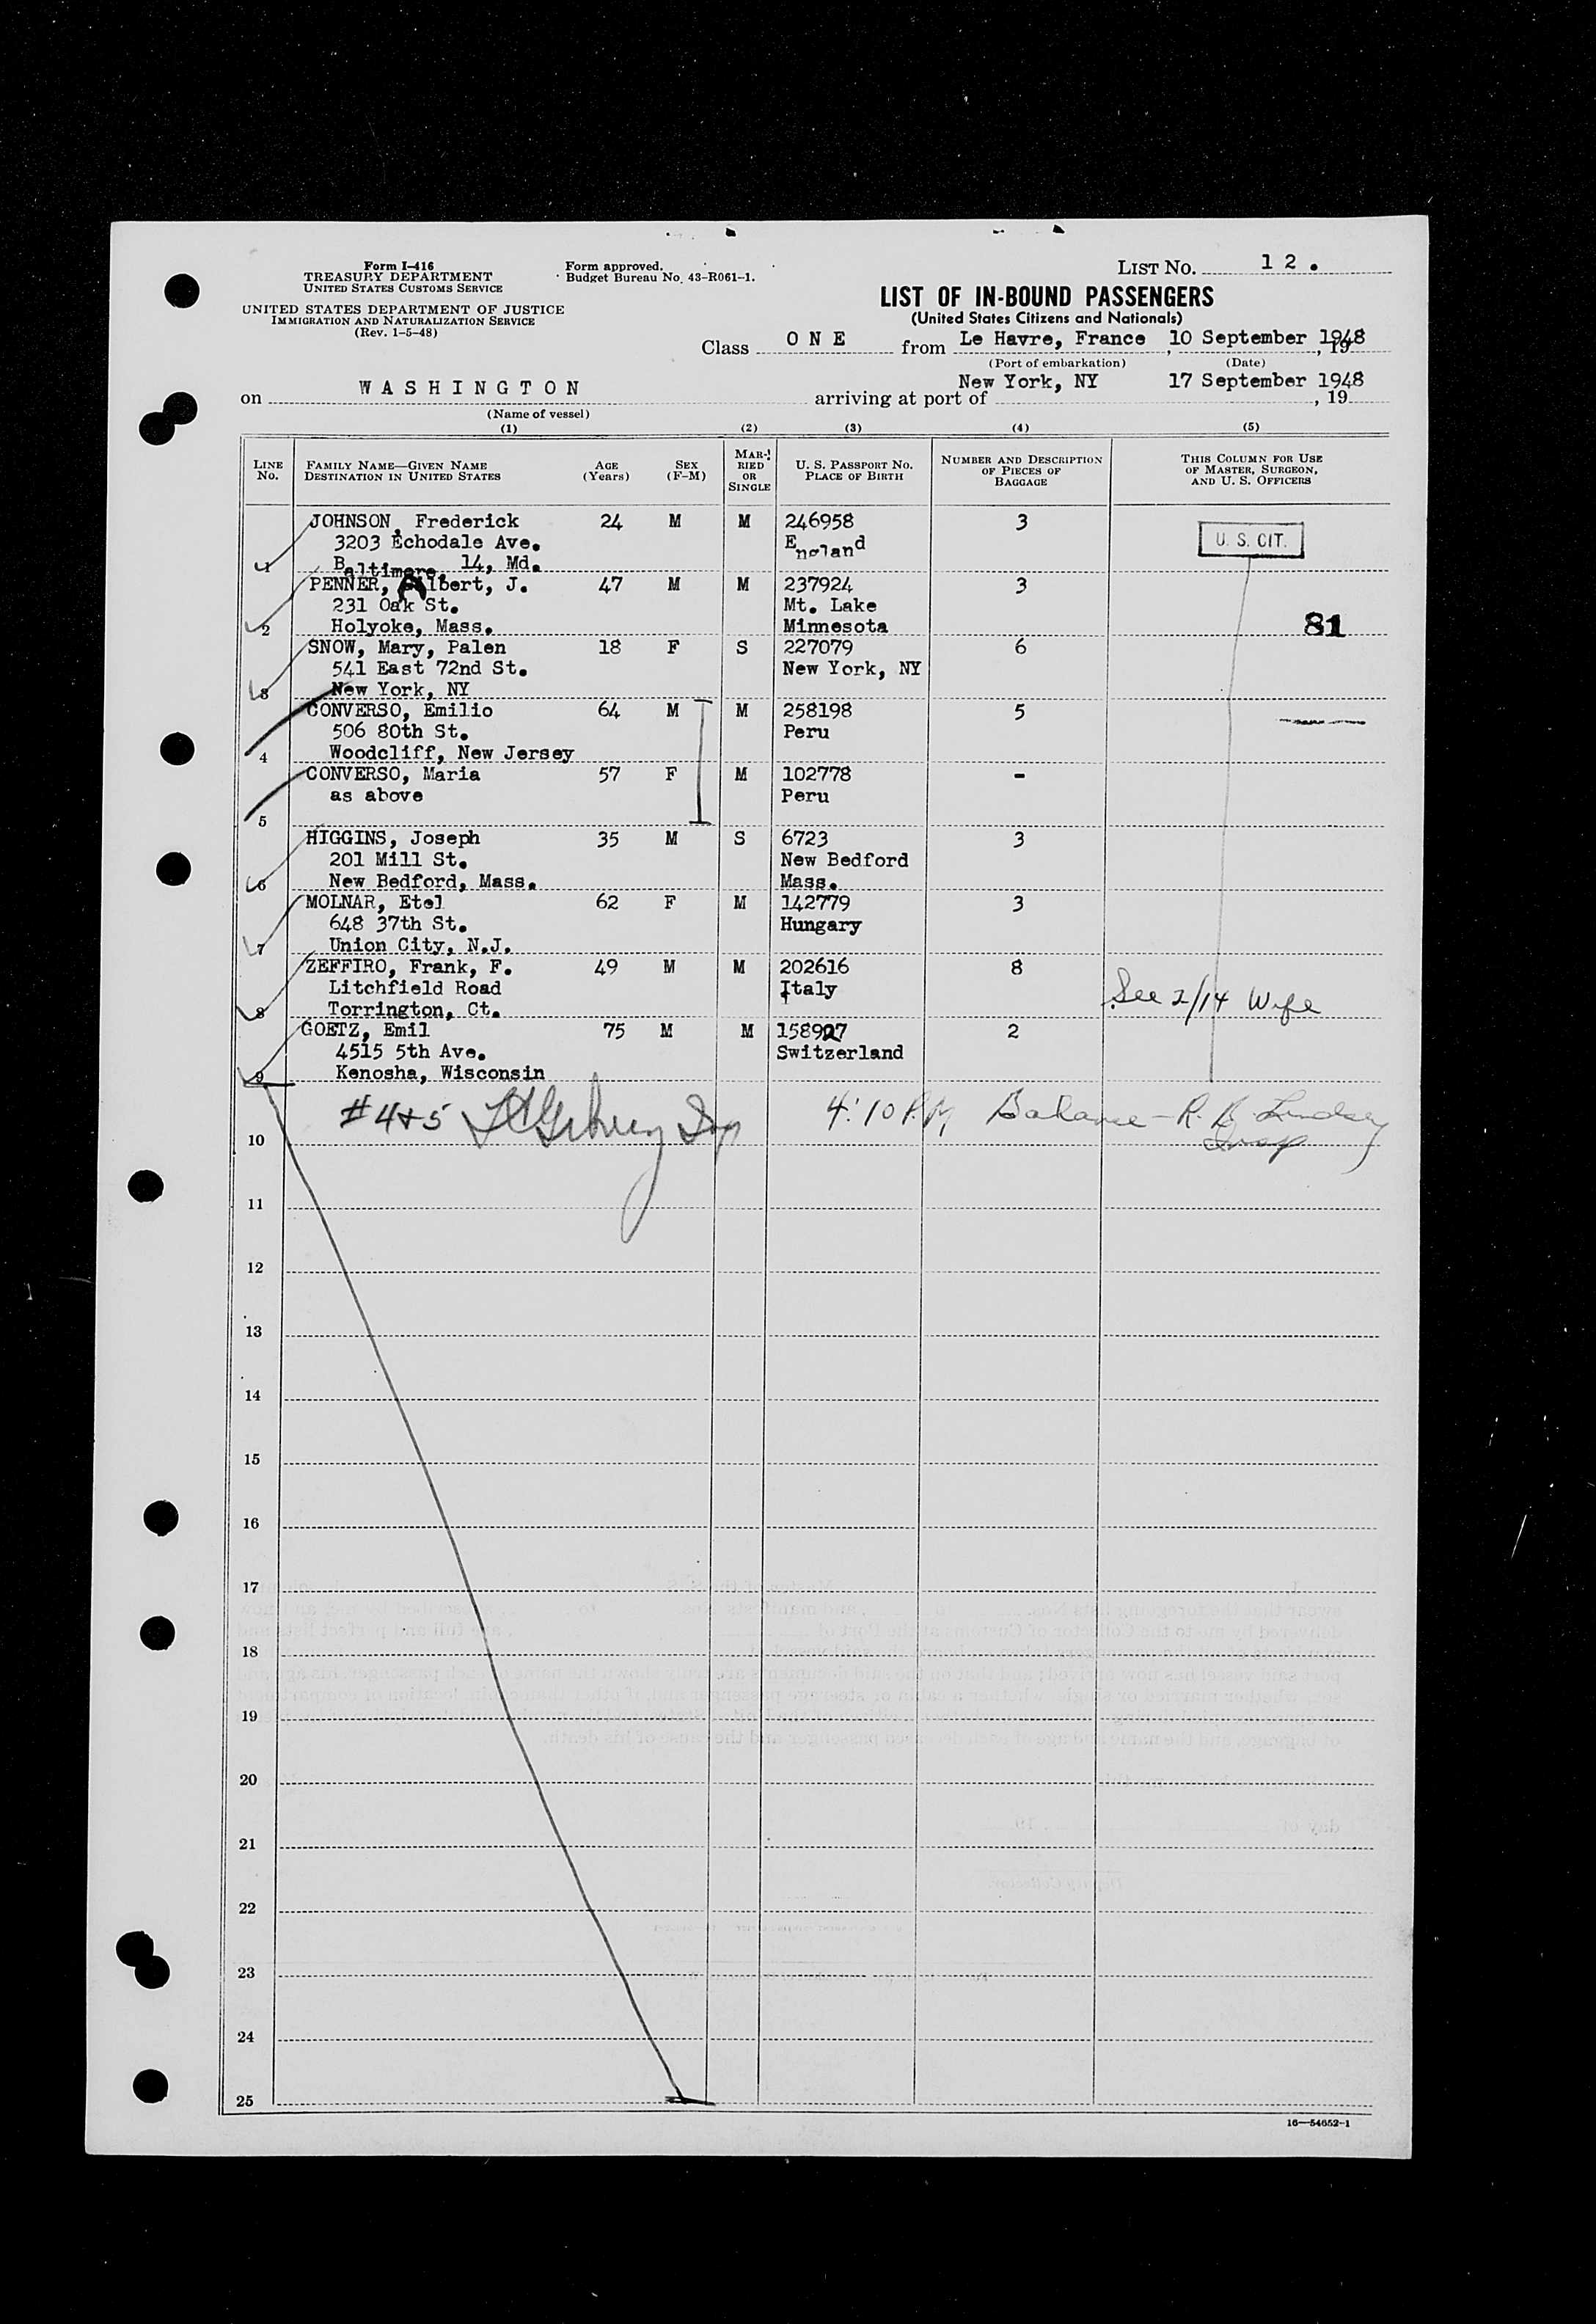 Form I-416
TREASURY DEPARTMENT
UNITED STATES CUSTOMS SERVICE
UNITED STATES DEPARTMENT OF JUSTICE
IMMIGRATION AND NATURALIZATION SERVICE
(Rev. 1-5-48)
Form approved.
Budget Bureau No. 43-R061-1.
LIST NO. 12.
LIST OF IN-BOUND PASSENGERS
(United States Citizens and Nationals)
Class ONE from Le Havre, France, 10 September 1948, 19
(Port of embarkation) (Date)
on WASHINGTON arriving at port of New York, NY 17 September 1948, 19
(Name of vessel)
(1) (2) (3) (4) (5)
LINE No. FAMILY NAME—GIVEN NAME DESTINATION IN UNITED STATES AGE (Years) SEX (F-M) MARRIED OR SINGLE U. S. PASSPORT No. PLACE OF BIRTH NUMBER AND DESCRIPTION OF PIECES OF BAGGAGE THIS COLUMN FOR USE OF MASTER, SURGEON, AND U. S. OFFICERS
JOHNSON, Frederick 24 M M 246958 3
3203 Echodale Ave. England U. S. CIT.
1 Baltimore, 14, Md.
PENNER, Albert, J. 47 M M 237924 3
231 Oak St. Mt. Lake
2 Holyoke, Mass. Minnesota 81
SNOW, Mary, Palen 18 F S 227079 6
541 East 72nd St. New York, NY
3 New York, NY
CONVERSO, Emilio 64 M M 258198 5
506 80th St. Peru
4 Woodcliff, New Jersey
CONVERSO, Maria 57 F M 102778 -
as above Peru
5
HIGGINS, Joseph 35 M S 6723 3
201 Mill St. New Bedford
6 New Bedford, Mass. Mass.
MOLNAR, Etel 62 F M 142779 3
648 37th St. Hungary
7 Union City, N.J.
ZEFFIRO, Frank, F. 49 M M 202616 8
Litchfield Road Italy See 2/14 Wife
8 Torrington, Ct.
GOETZ, Emil 75 M M 158927 2
4515 5th Ave. Switzerland
9 Kenosha, Wisconsin
#4+5 Insp 4:10 P.M Balance - R. B. Lindsey
10 Insp
11
12
13
14
15
16
17
18
19
20
21
22
23
24
25
16—54652-1